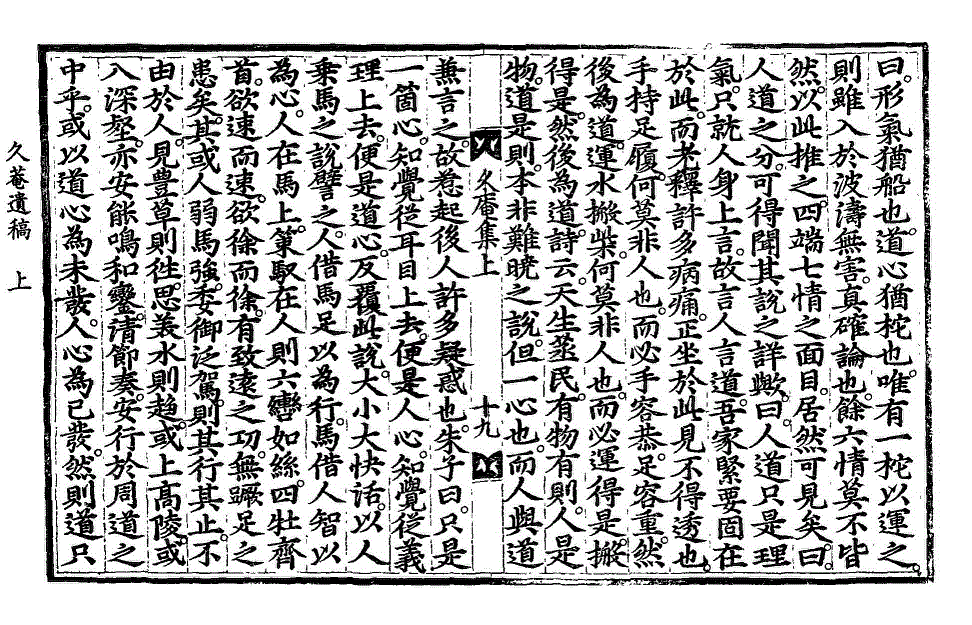 曰。形氣猶船也。道心猶柁也。唯有一柁以運之。
則雖入於波濤無害。眞確論也。餘六情莫不皆
然。以此推之。四端七情之面目。居然可見矣。曰。
人道之分。可得聞其說之詳歟。曰。人道只是理
氣。只就人身上言。故言人言道。吾家緊要固在
於此。而老釋許多病痛。正坐於此見不得透也。
手持足履。何莫非人也。而必手容恭。足容重。然
後爲道。運水搬柴。何莫非人也。而必運得是搬
得是。然後爲道。詩云。天生蒸民。有物有則。人是
物。道是則。本非難曉之說。但一心也。而人與道
久庵集上 十九
兼言之。故惹起後人許多疑惑也。朱子曰。只是
一箇心。知覺從耳目上去。便是人心。知覺從義
理上去。便是道心。反覆此說。大小大快活。以人
乘馬之說譬之。人借馬足以爲行。馬借人智以
爲心。人在馬上。策馭在人。則六轡如絲。四牡齊
首。欲速而速。欲徐而徐。有致遠之功。無蹶足之
患矣。其或人弱馬強。委御泛駕。則其行其止。不
由於人。見豊草則徃。思美水則趨。或上高陵。或
入深壑。亦安能鳴和鑾。淸節奏。安行於周道之
中乎。或以道心爲未發。人心爲已發。然則道只
久菴遺稿 上